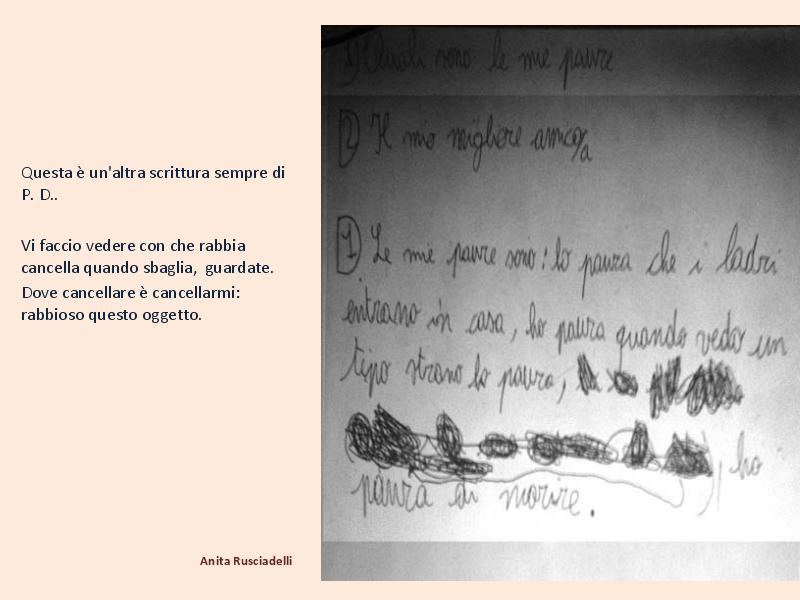 Questa è un'altra scrittura sempre di
P. D..
Vi faccio vedere con che rabbia
cancella quando sbaglia, guardate.
Dove cancellare è cancellarmi:
rabbioso questo oggetto.
Anita Rusciadelli
1) Quali sono le mie paure
2) Il mio migliore amico/a
1) Le mie paure sono: lo paura che i ladri
entrano in casa, ho paura quando vedo un
tipo strano lo paura,
, ho
paura di morire.